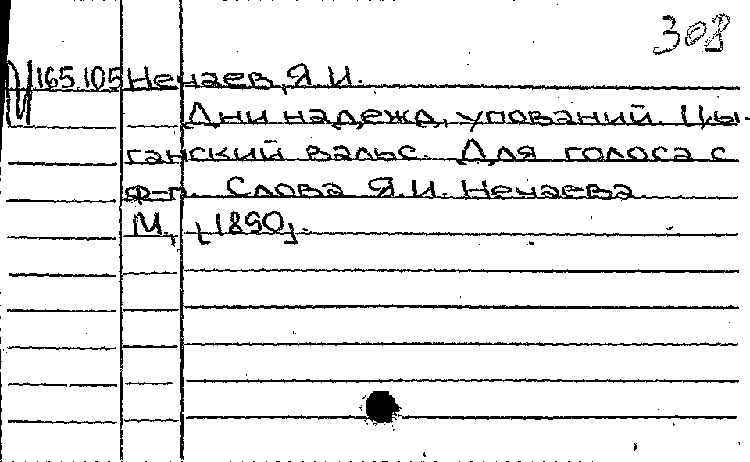 308
165.105 Нечаев, Я.И.
Дни надежд, упований. Цы-
ганский вальс. Для голоса с
ф-п. Слова Я.И. Нечаева.
М., [1890].